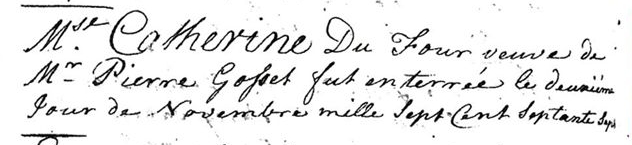 Mse. Catherine Du Four veuve de
Mr Pierre Gosset fut enterrée le deuxiéme
Jour de Novembre mille Sept Cent Septante Sept